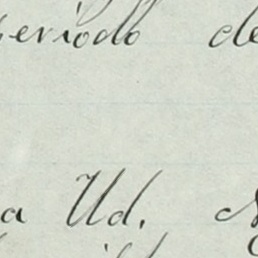 periodo de
a Ud.